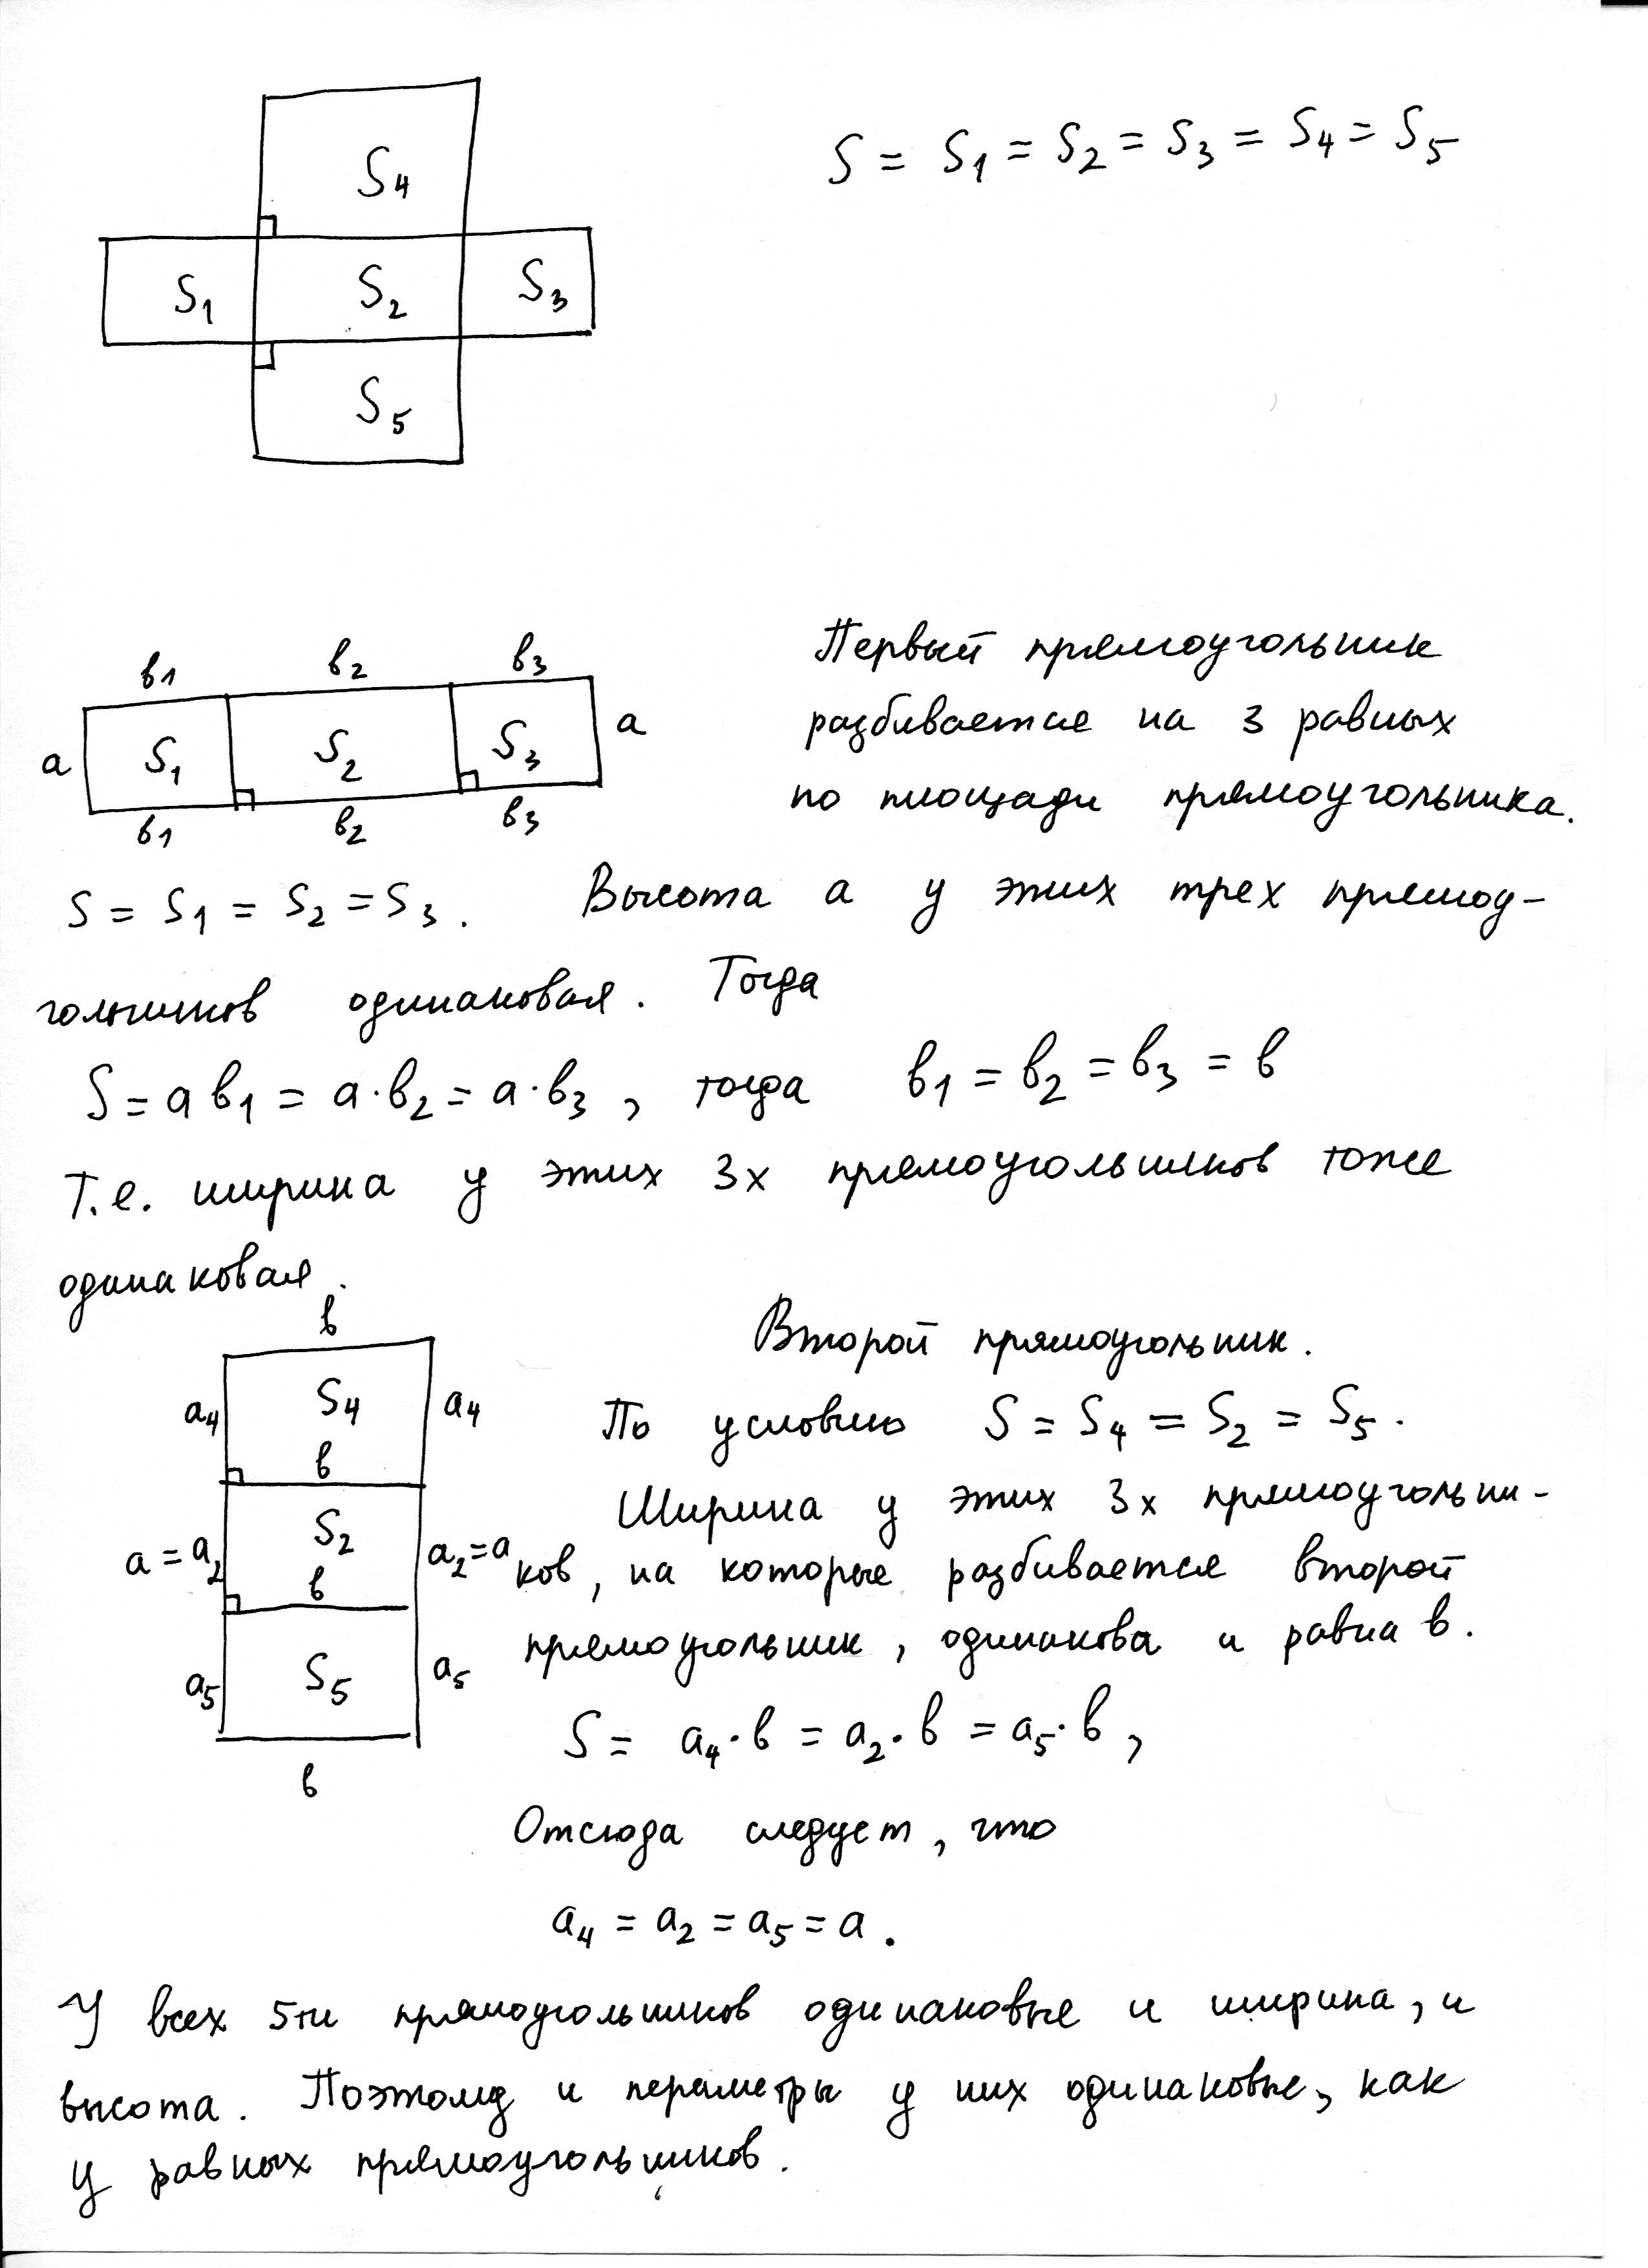 S4
S = S1 = S2 = S3 = S4 = S5
S1 S2 S3
S5
в1 в2 в3
Первый прямоугольник
а S1 S2 S3 а
разбивается на 3 равных
по площади прямоугольника.
в1 в2 в3
S = S1 = S2 = S3. Высота а у этих трех прямоу-
гольников одинаковая. Тогда
S = ав1 = а·в2 = а·в3, тогда в1 = в2 = в3 = в
Т.е. ширина у этих 3х прямоугольников тоже
одинаковая.
в
Второй прямоугольник.
а4 S4 а4
По условию S = S4 = S2 = S5.
в
Ширина у этих 3х прямоугольни-
а = а2 S2 а2 = а
ков, на которые разбивается второй
в
прямоугольник, одинакова и равна в.
а5 S5 а5
S = а4·в = а2·в = а5·в,
в
Отсюда следует, что
а4 = а2 = а5 = а.
У всех 5ти прямоугольников одинаковые и ширина, и
высота. Поэтому и периметры у них одинаковые, как
у равных прямоугольников.